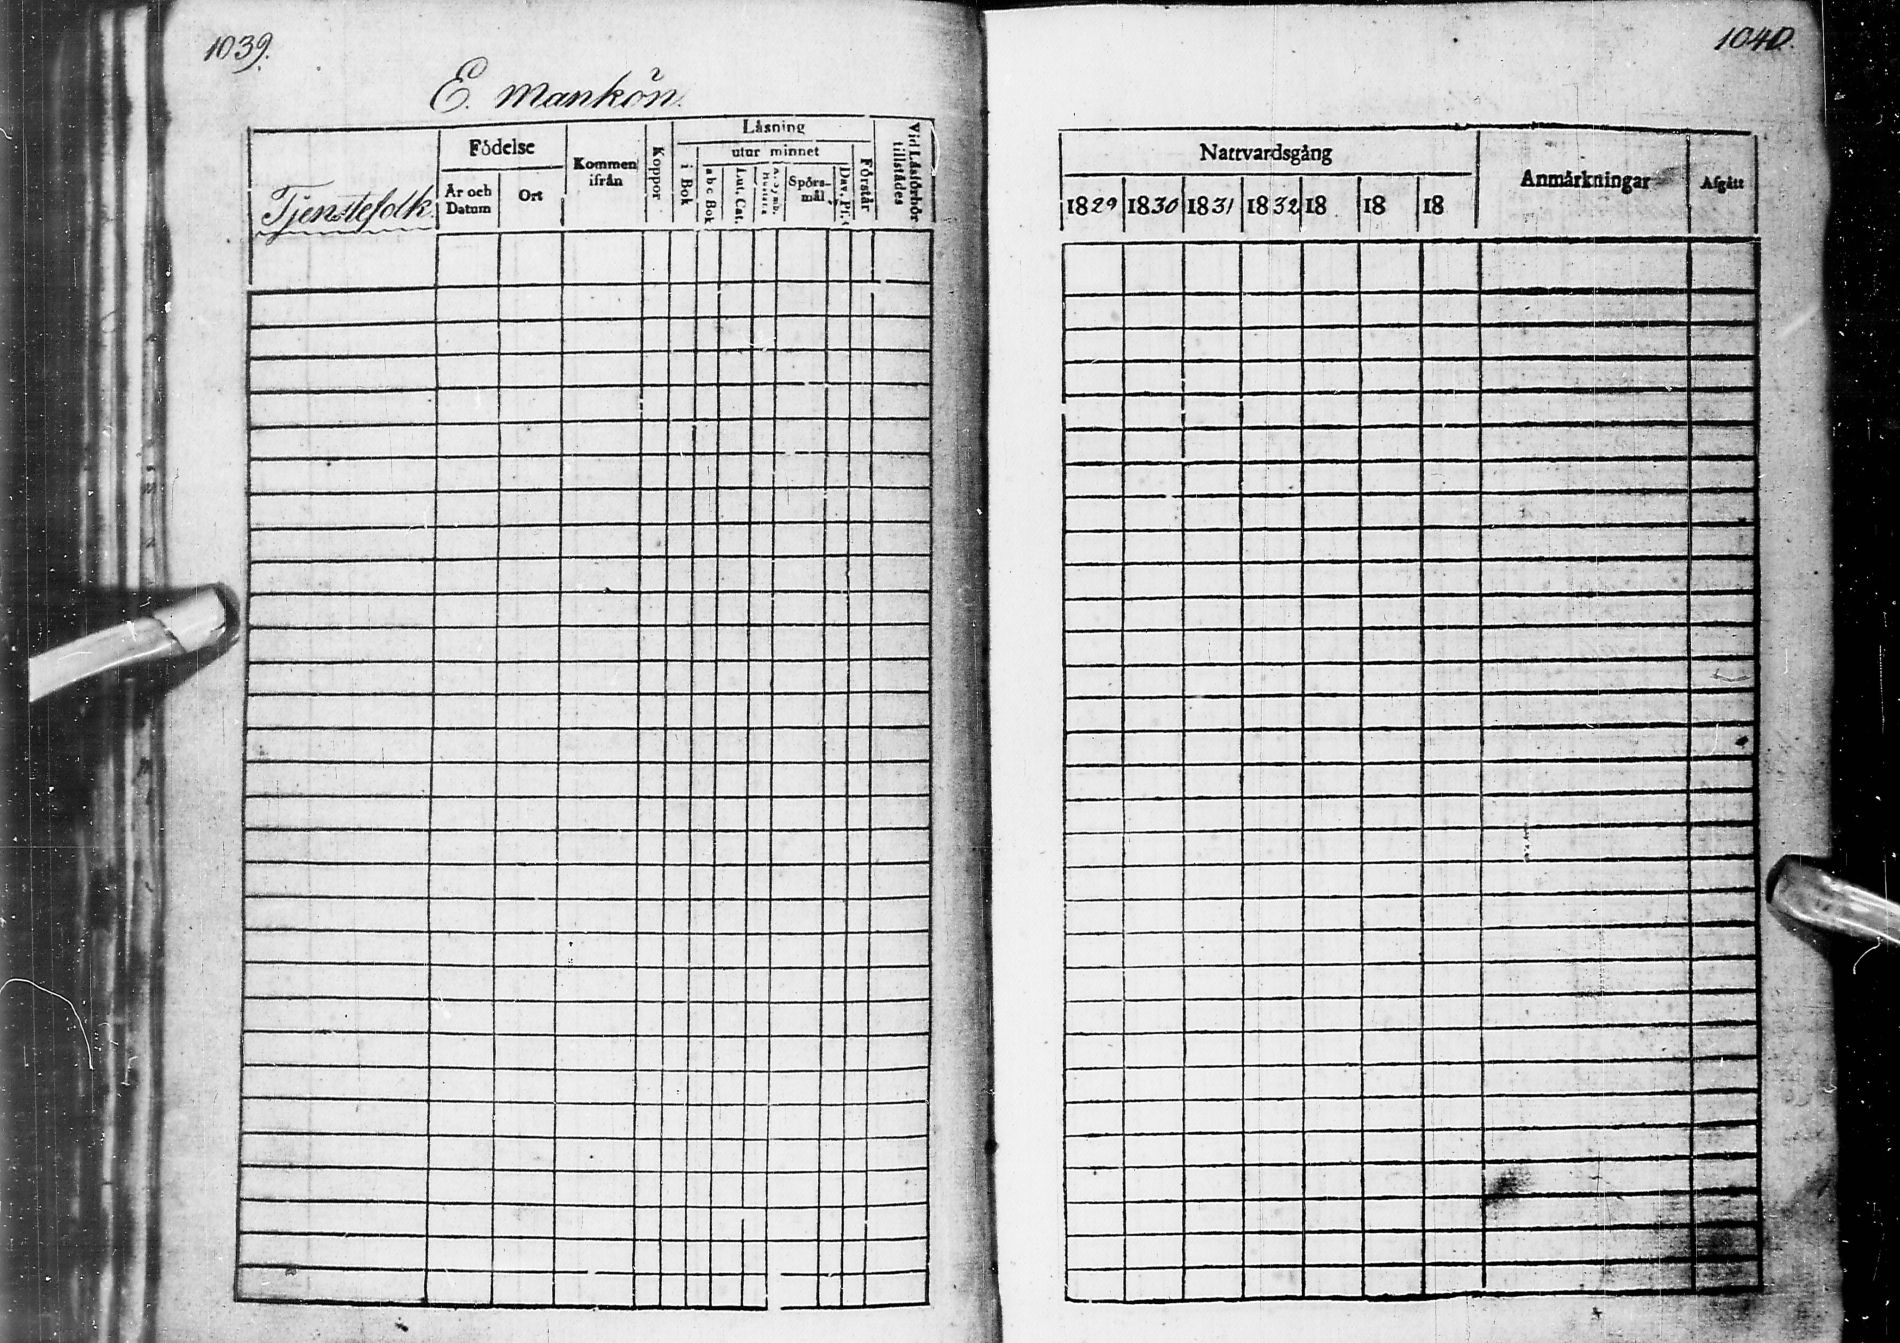 1039.
E. Mankön.
Tjenstefolk.
Födelse
År och Datum
Ort
Kommen ifrån
Koppor
Läsning
utur minnet
i Bok
abc Bok
Lut. Cat.
Hustafla
Spörs-mål
Dav. Ps.
Förstår
Vid Läsförhör tillstädes
1040.
Nattvardsgång
1829
1830
1831
1832
18
18
18
Anmärkningar
Afgått